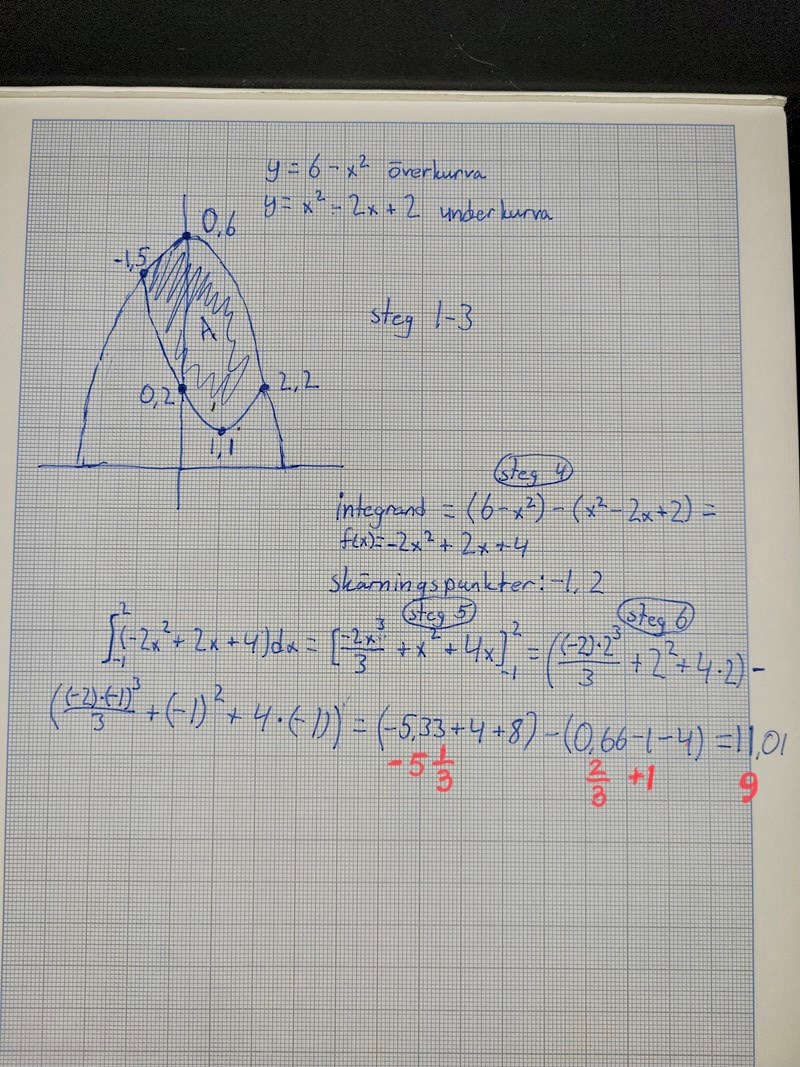 y = 6 - x² överkurva
y = x² - 2x + 2 underkurva
0,6
-1,5
steg 1-3
A
0,2
2,2
1,1
steg 4
integrand = (6-x²) - (x² - 2x+2) =
f(x)= -2x² + 2x + 4
skärningspunkter: -1, 2
steg 5
steg 6
∫₋₁² (-2x² + 2x + 4)dx = [-2x³/3 + x² + 4x]²₋₁ = ((-2)·2³/3 + 2² + 4·2) -
((-2)·(-1)³/3 + (-1)² + 4·(-1)) = (-5,33 + 4 + 8) - (0,66 - 1 - 4) = 11,01
-5 1/3
2/3 +1
9